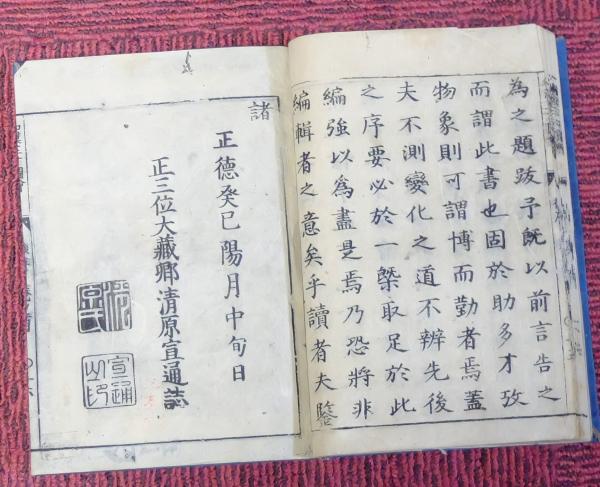 為之題跋予既以前言告之
而謂此書也固於助多才攷
物象則可謂博而勤者焉蓋
夫不測變化之道不辨先後
之序要必於一槩取足於此
編強以為盡是焉乃恐將非
編輯者之意矣乎讀者夫鑒
諸
正德癸巳陽月中旬日
正三位大藏卿清原宣通誌
清原氏
宣通之印